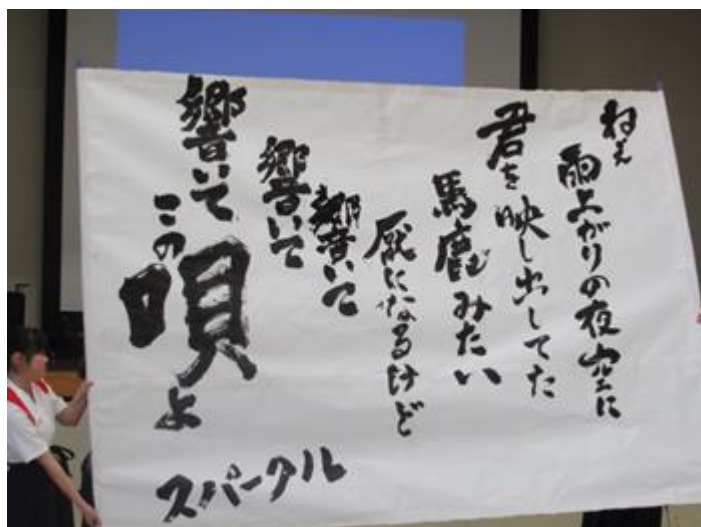 ねぇ
雨上がりの夜空に
君を映し出してた
馬鹿みたい
厭になるけど
響いて
響いて
響いて
この
唄よ
スパークル